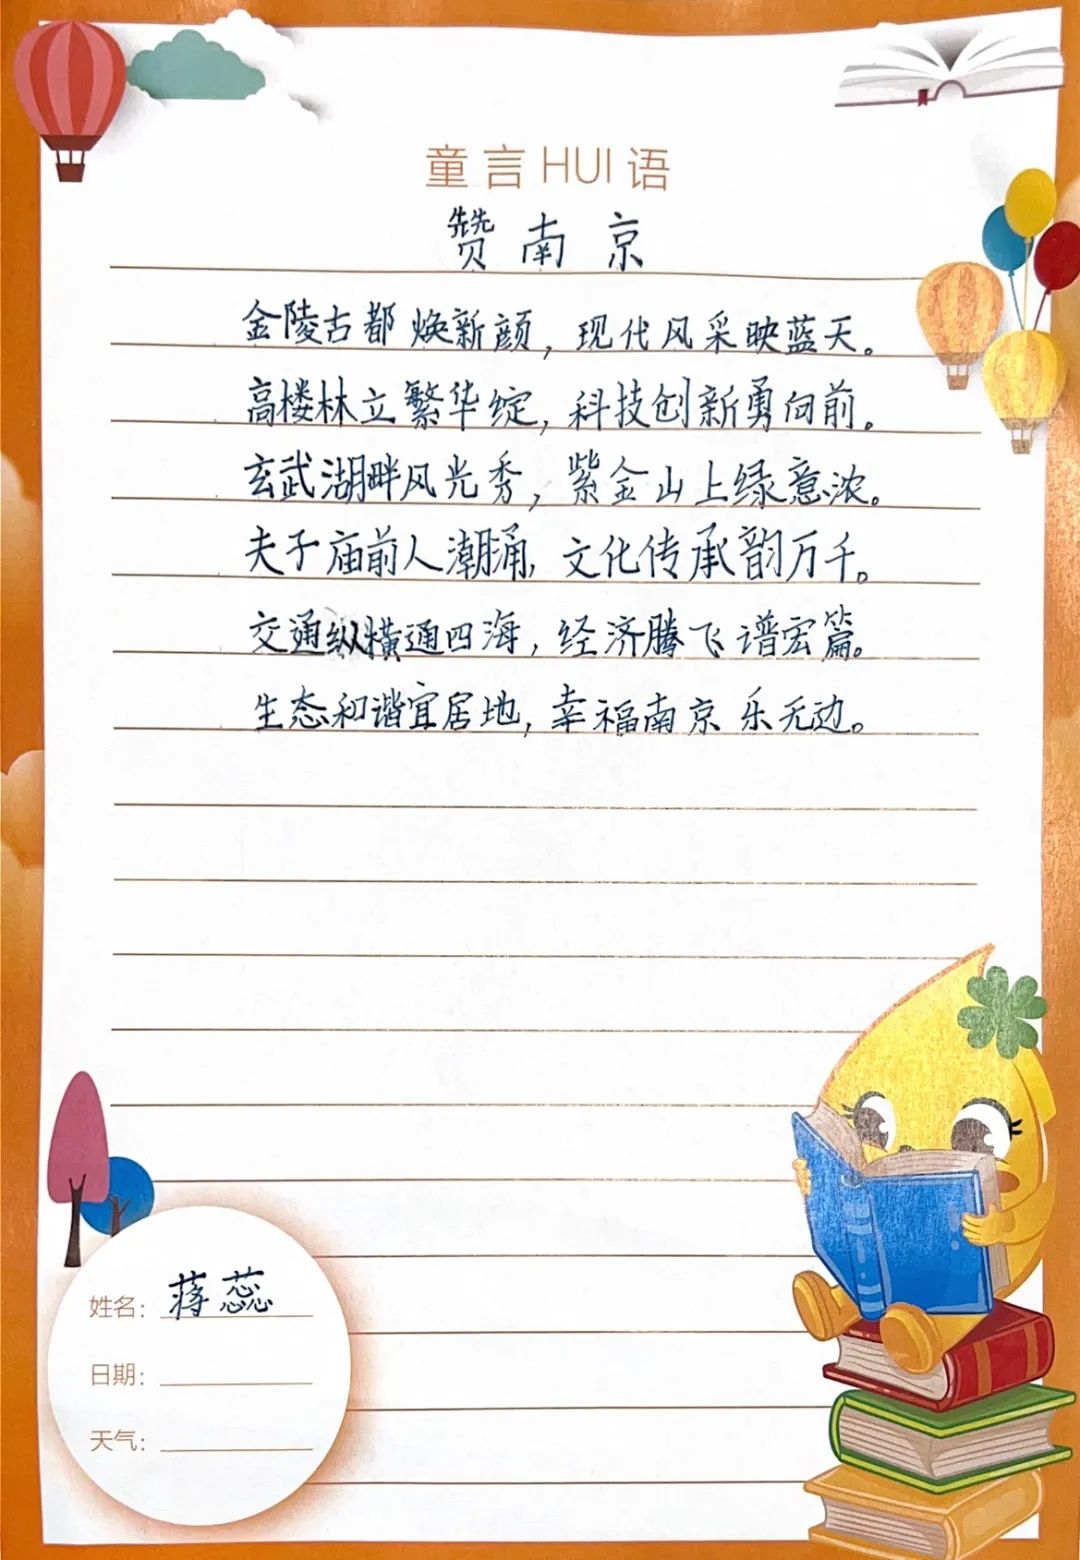 童言HUI语
赞南京
金陵古都焕新颜，现代风采映蓝天。
高楼林立繁华绽，科技创新勇向前。
玄武湖畔风光秀，紫金山上绿意浓。
夫子庙前人潮涌，文化传承韵万千。
交通纵横通四海，经济腾飞谱宏篇。
生态和谐宜居地，幸福南京乐无边。
姓名：蒋蕊
日期：
天气：